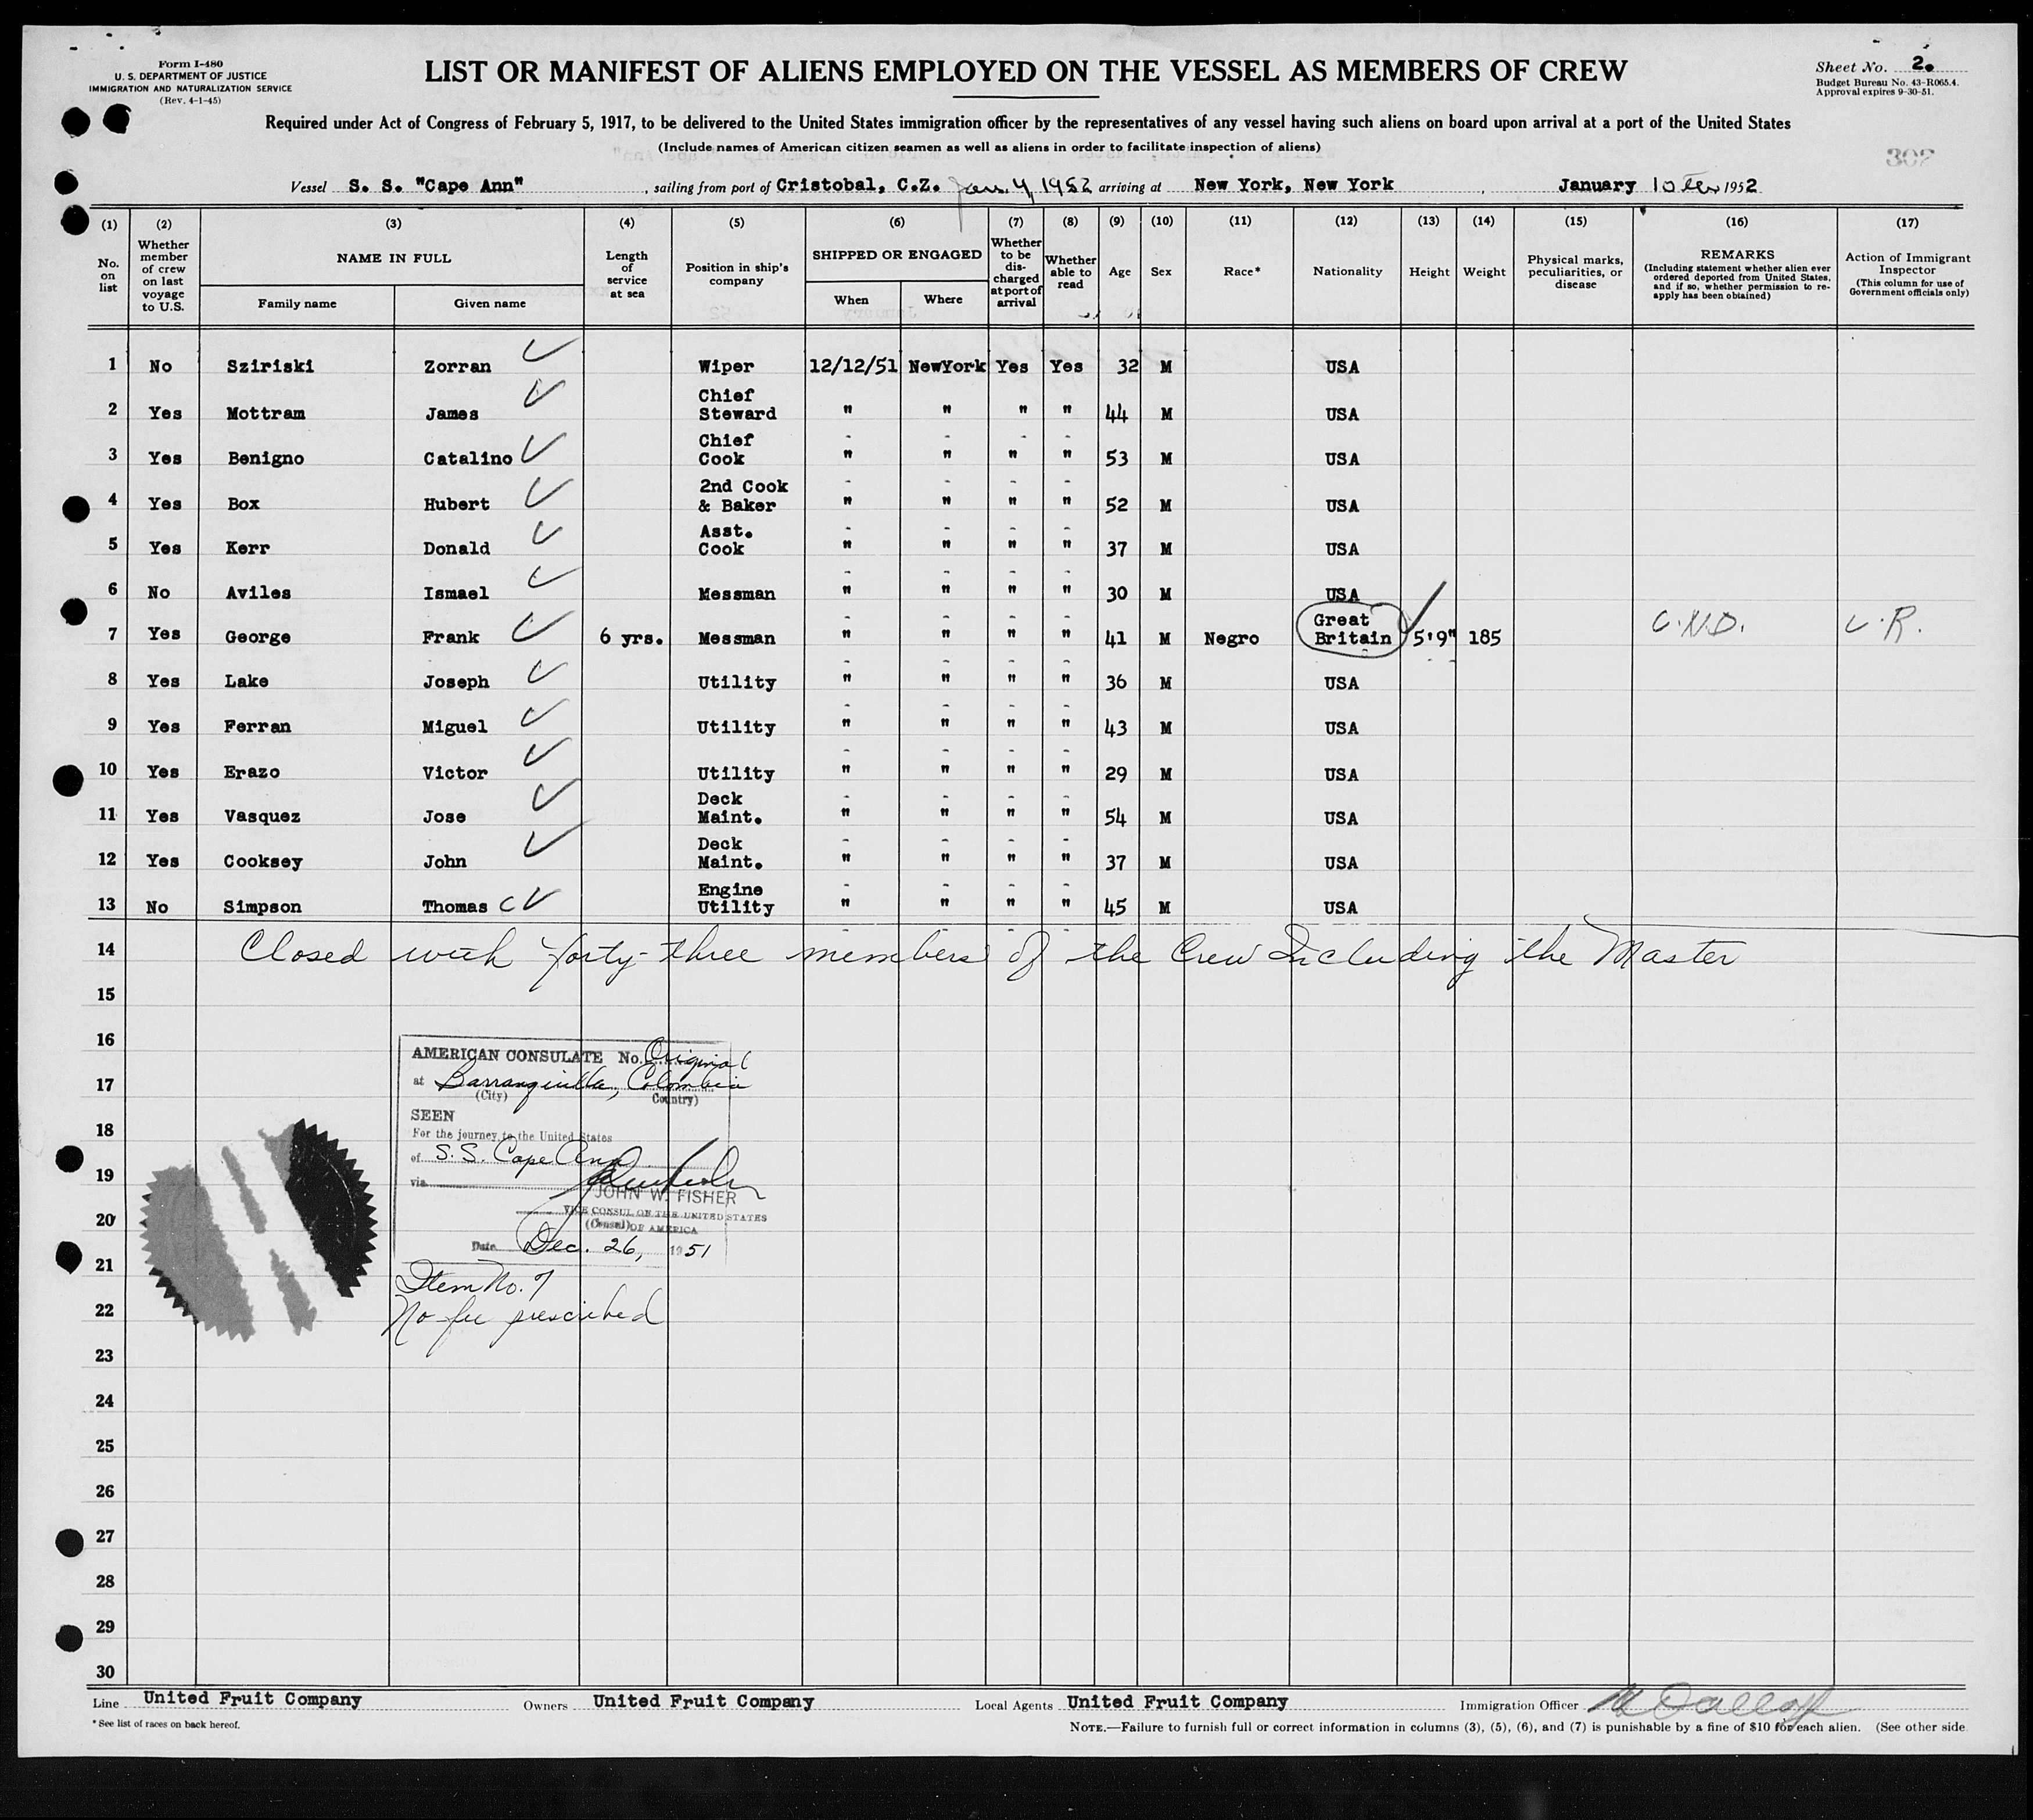 Form I-480
U. S. DEPARTMENT OF JUSTICE
IMMIGRATION AND NATURALIZATION SERVICE
(Rev. 4-1-45)
LIST OR MANIFEST OF ALIENS EMPLOYED ON THE VESSEL AS MEMBERS OF CREW
Sheet No. 2.
Budget Bureau No. 43-R065.4.
Approval expires 9-30-51.
Required under Act of Congress of February 5, 1917, to be delivered to the United States immigration officer by the representatives of any vessel having such aliens on board upon arrival at a port of the United States
(Include names of American citizen seamen as well as aliens in order to facilitate inspection of aliens)
302
Vessel S. S. "Cape Ann", sailing from port of Cristobal, C.Z. Jan. 4, 1952 arriving at New York, New York, January 10 1952
(1) (2) (3) (4) (5) (6) (7) (8) (9) (10) (11) (12) (13) (14) (15) (16) (17)
No. on list
Whether member of crew on last voyage to U.S.
NAME IN FULL
Family name Given name
Length of service at sea
Position in ship's company
SHIPPED OR ENGAGED
When Where
Whether to be discharged at port of arrival
Whether able to read
Age
Sex
Race*
Nationality
Height
Weight
Physical marks, peculiarities, or disease
REMARKS
(Including statement whether alien ever ordered deported from United States, and if so, whether permission to re-apply has been obtained)
Action of Immigrant Inspector
(This column for use of Government officials only)
1 No Sziriski Zorran Wiper 12/12/51 NewYork Yes Yes 32 M USA
2 Yes Mottram James Chief Steward " " " " 44 M USA
3 Yes Benigno Catalino Chief Cook " " " " 53 M USA
4 Yes Box Hubert 2nd Cook & Baker " " " " 52 M USA
5 Yes Kerr Donald Asst. Cook " " " " 37 M USA
6 No Aviles Ismael Messman " " " " 30 M USA
7 Yes George Frank 6 yrs. Messman " " " " 41 M Negro Great Britain 5'9" 185 C.N.D. V.R.
8 Yes Lake Joseph Utility " " " " 36 M USA
9 Yes Ferran Miguel Utility " " " " 43 M USA
10 Yes Erazo Victor Utility " " " " 29 M USA
11 Yes Vasquez Jose Deck Maint. " " " " 54 M USA
12 Yes Cooksey John Deck Maint. " " " " 37 M USA
13 No Simpson Thomas C Engine Utility " " " " 45 M USA
14 Closed with forty-three members of the Crew Including the Master
15
16
17
18
19
20
21
22
23
24
25
26
27
28
29
30
AMERICAN CONSULATE No. Original
at Barranquilla, Colombia
(City) Country)
SEEN
For the journey to the United States
of S.S. Cape Ann
via
JOHN W. FISHER
VICE CONSUL OF THE UNITED STATES
(Consul) OF AMERICA
Date Dec. 26, 1951
Item No. 7
No fee prescribed
Line United Fruit Company Owners United Fruit Company Local Agents United Fruit Company Immigration Officer
* See list of races on back hereof.
NOTE.—Failure to furnish full or correct information in columns (3), (5), (6), and (7) is punishable by a fine of $10 for each alien. (See other side